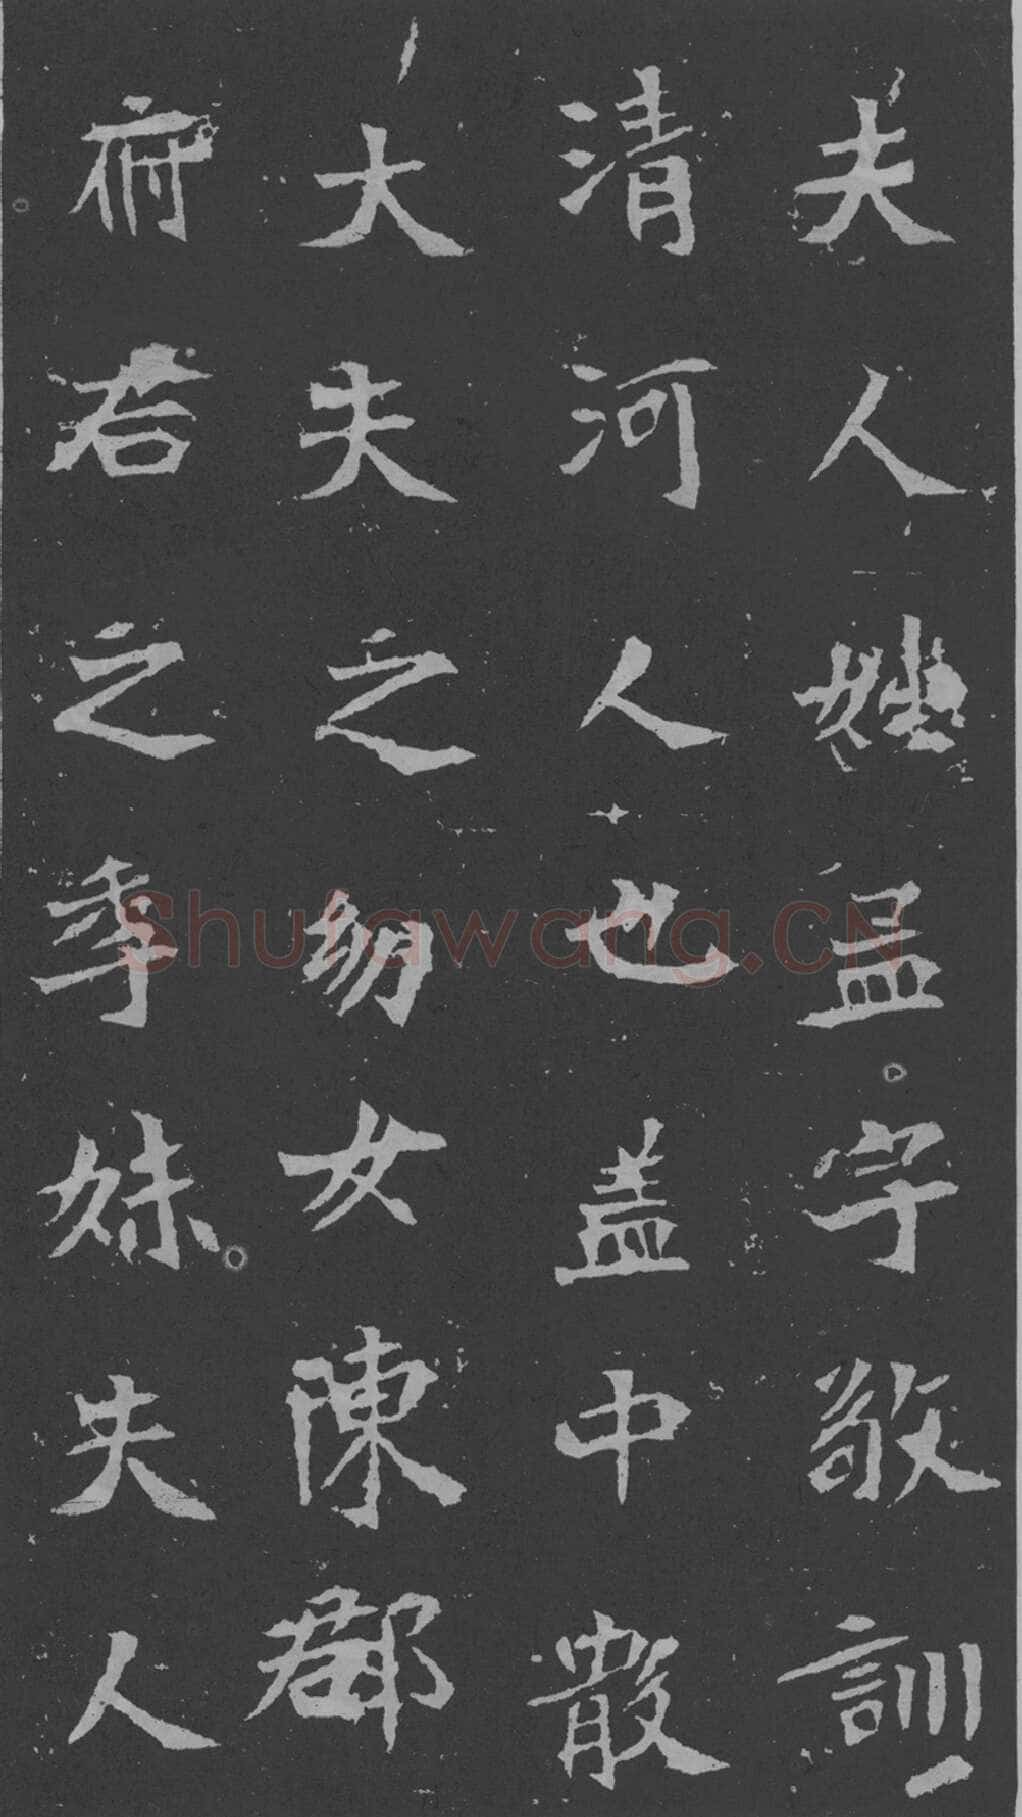 夫人姓孟字敬訓
清河人也盖中散
大夫之幼女陳郡
府君之季妹夫人
Shufawang.CN